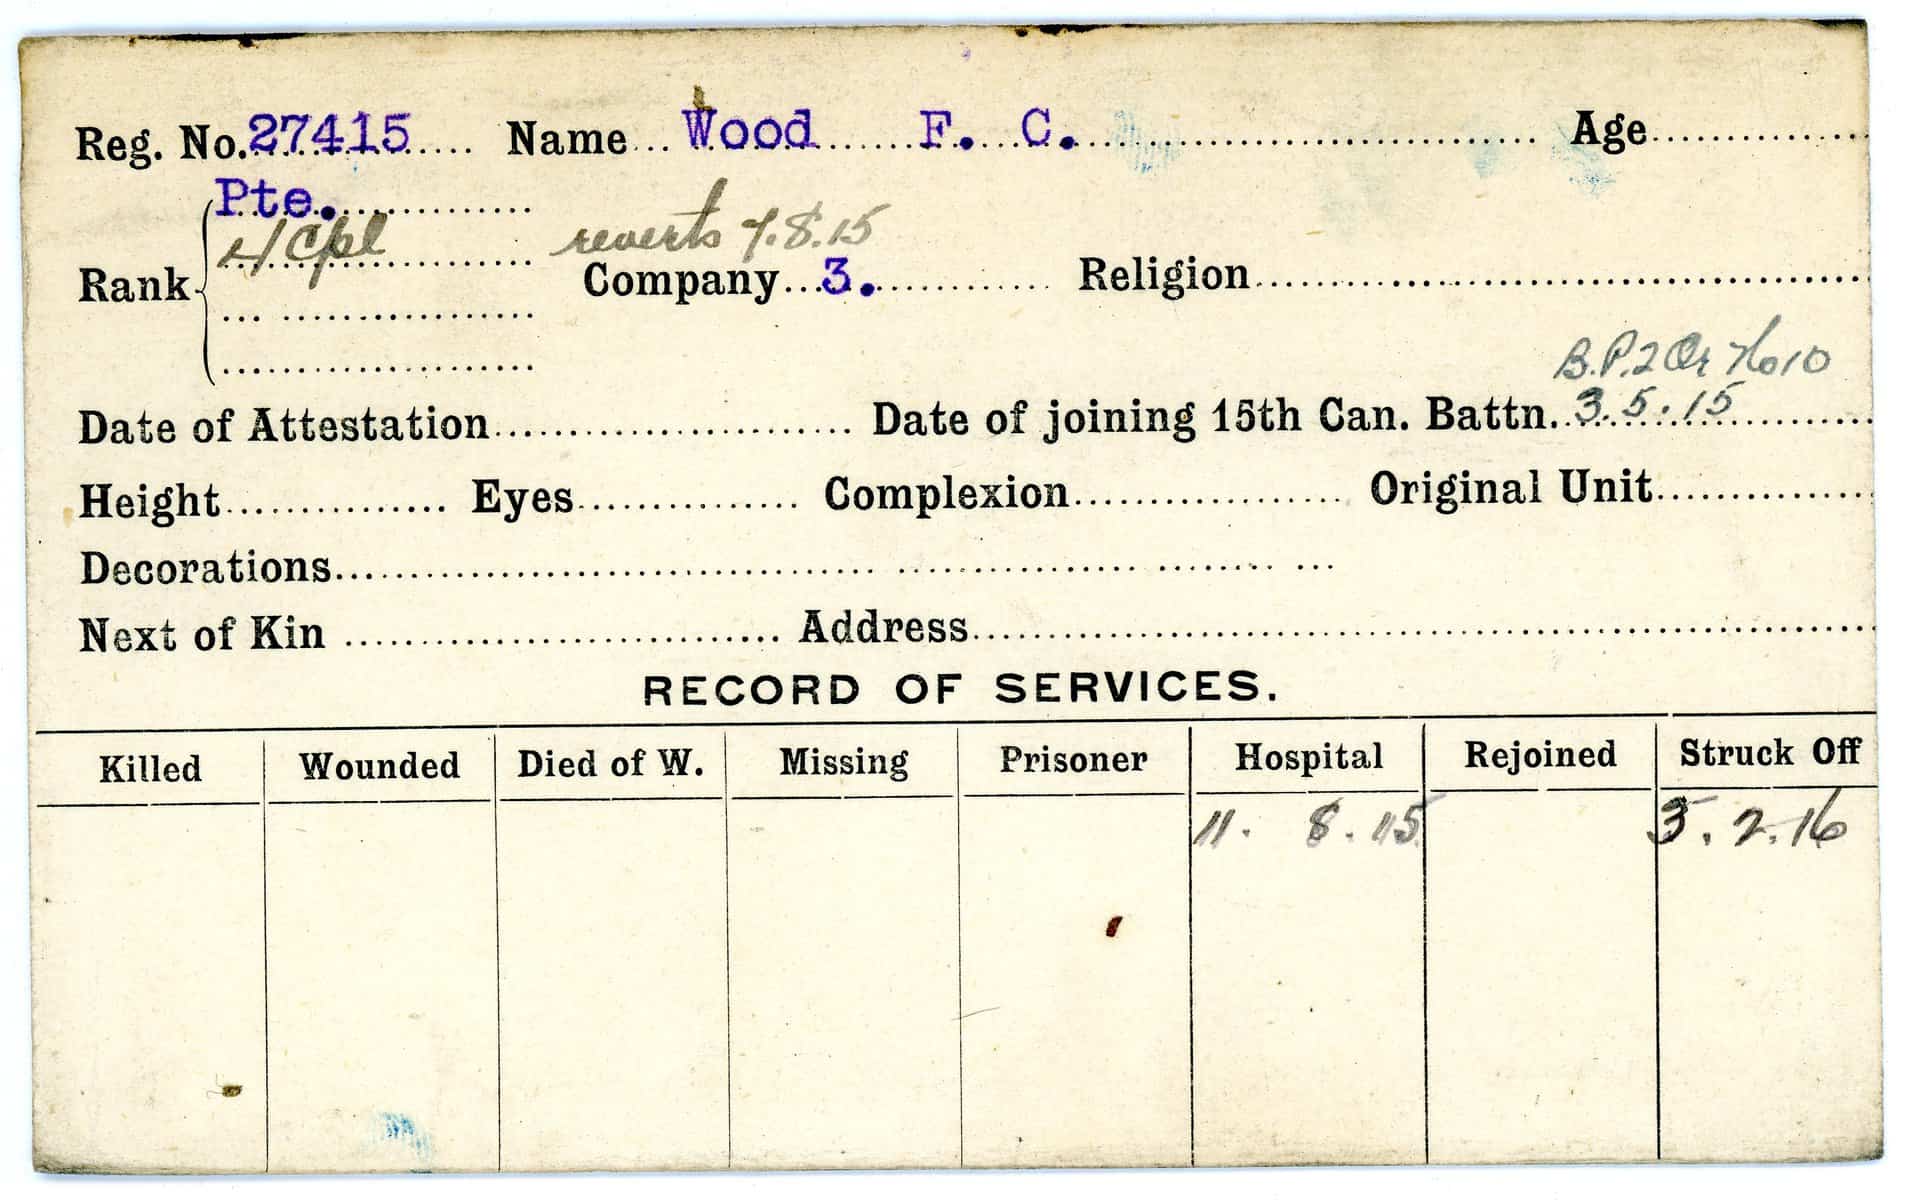 Reg. No. 27415 Name Wood F. C. Age
Pte.
Cpl reverts 7.8.15
Rank Company 3. Religion
B.P.2 Or No 10
Date of Attestation Date of joining 15th Can. Battn. 3.5.15
Height Eyes Complexion Original Unit
Decorations
Next of Kin Address
RECORD OF SERVICES.
Killed Wounded Died of W. Missing Prisoner Hospital Rejoined Struck Off
11. 8. 15 3. 2. 16